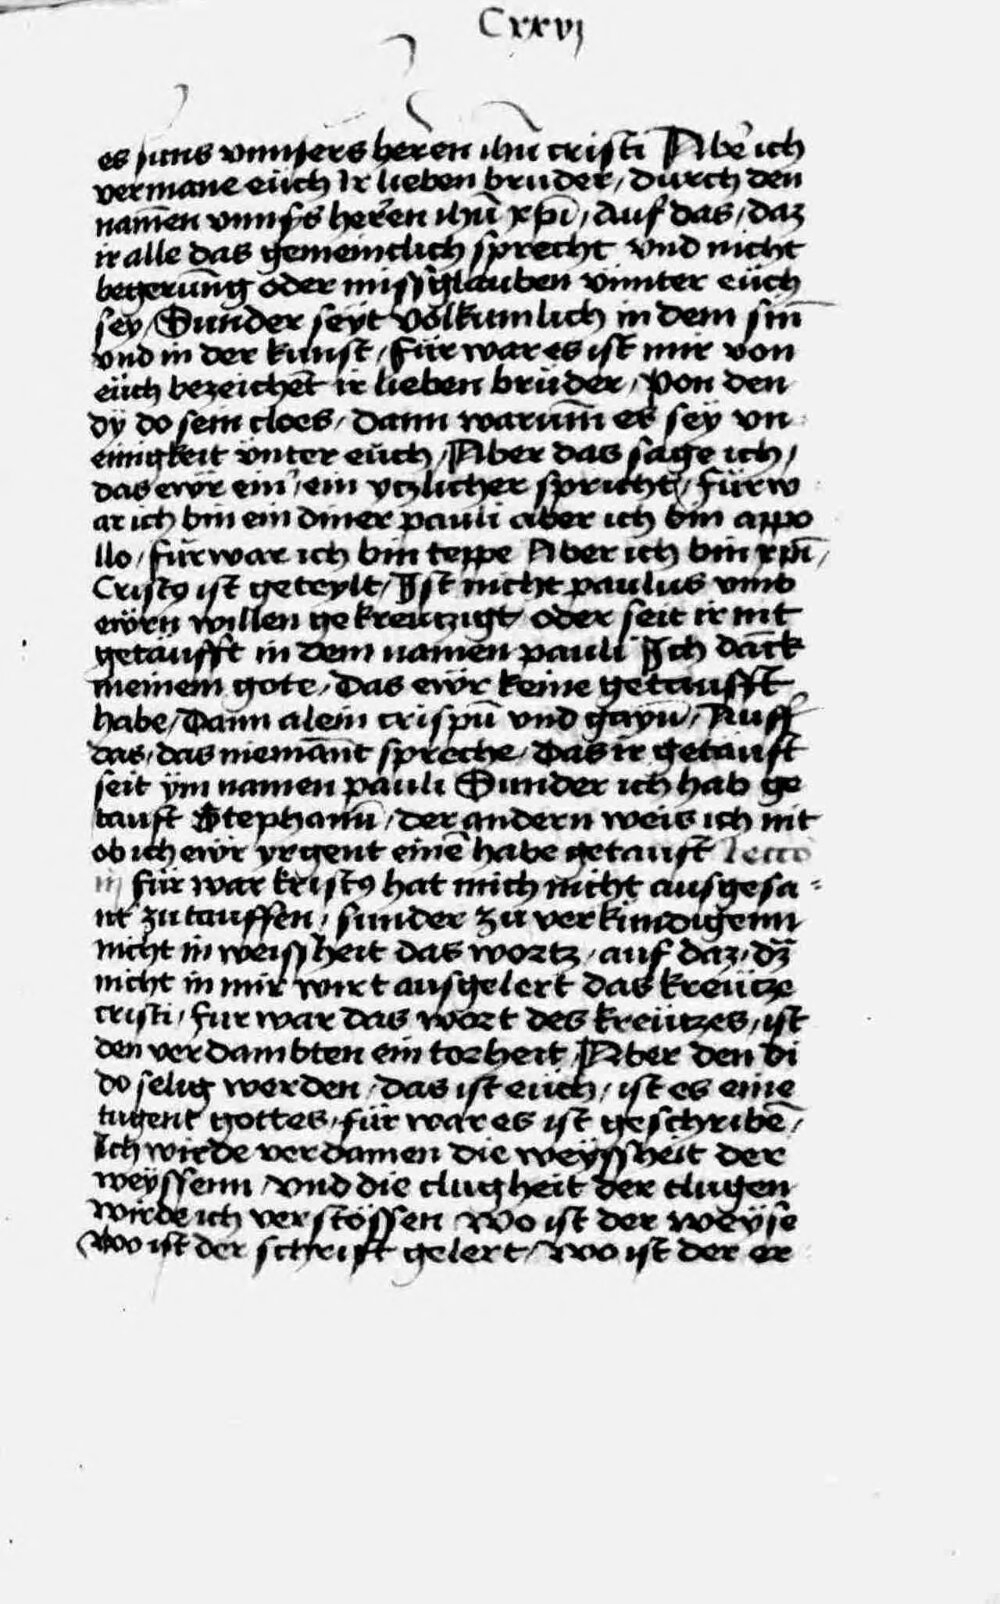 Cxxvj
es suns vnnsers herren ihū cristi Aber ich
vermane eüch Ir lieben bruder / durch den
namen vnnsˢs herren ihū xp̄i / auf das / daz
ir alle das gemeinclich sprecht vnd nicht
begerūng oder missglauben vnnter eüch
sey / Sunder seyt volkumlich in dem sīn
vnd in der kunst / für war es ist mir von
eüch bezeichēt ir lieben brüder / von den
dÿ do sein cloes / dann warum̄ es seÿ vn
einigkeit vnter eüch / Aber das sage ich /
das ewr ein / ein yczlicher spricht / fürw
ar ich bin ein diner pauli aber ich bin appo
llo / für war ich bin teppe Aber ich bin xp̄i /
Cristꝯ ist geteylt / Ist nicht paulus vmb
ewrn willen gekreutzigt oder seit ir nit
getaufft in dem namen pauli Ich dāck
meinem gote / das ewr keine getaufft
habe / Dann alein crispū vnd gayū / Auff
das / das niemānt spreche / das ir getauft
seit ym namen pauli Sunder ich hab ge
tauft Stephanū / der andern weis ich nit
ob ich ewr yrgent einē habe getauft Lectō
iij für war kristꝯ hat mich nicht ausgesa =
nt zu tauffen / sunder zu verkündigenn
nicht in weissheit das wortz / auf daz / dz̄
nicht in mir wirt ausgelert das kreütze
cristi / fur war das wort des kreützes / ist
den verdambten ein torheit / Aber den di
do selig werden / das ist eüch / ist es eine
tugent gottes / für war es ist geschribē /
Ich wirde verdamen die weÿssheit der
weÿssenn / vnd die clugheit der clugen
wirde ich verstössen Wo ist der weÿse
Wo ist der schrift gelert / wo ist der er